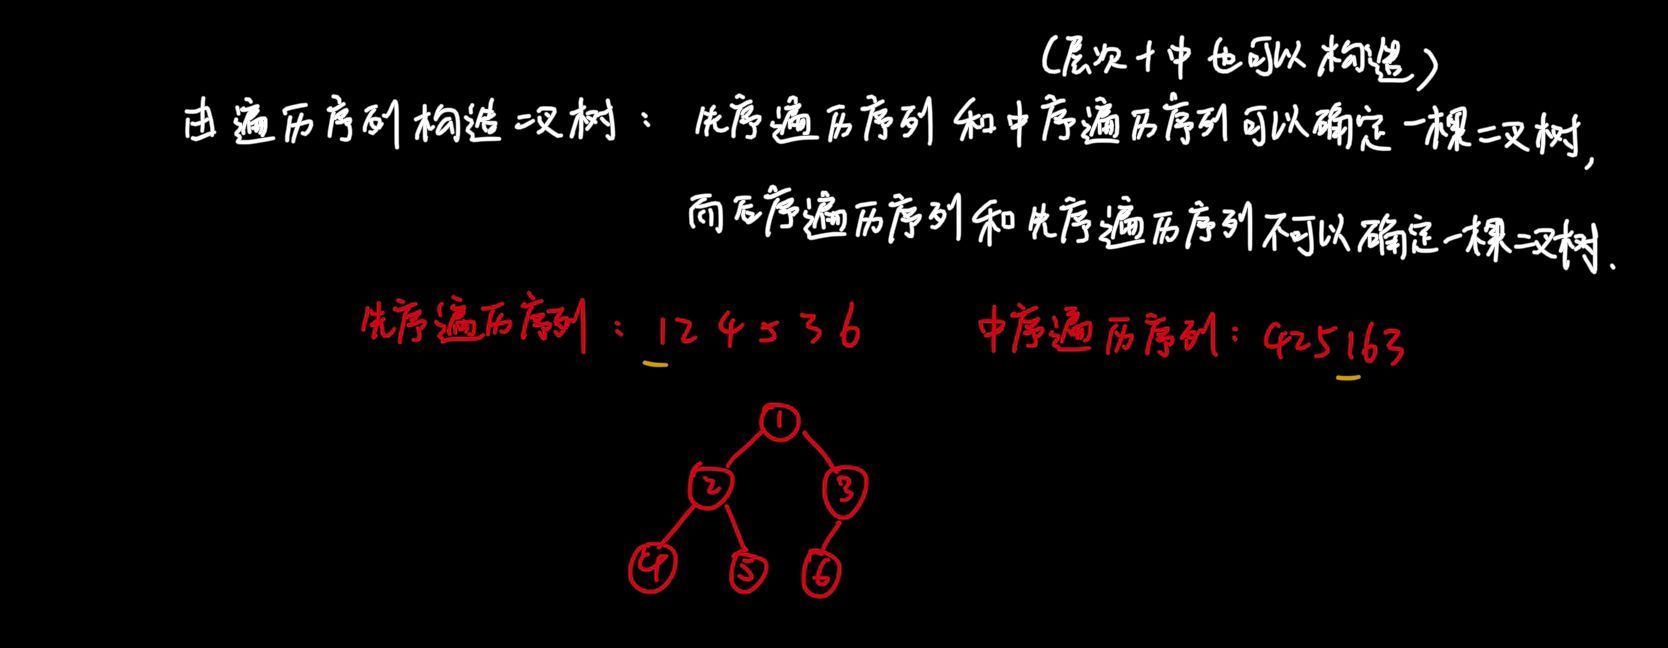 (层次+中也可以构造)
由遍历序列构造二叉树: 先序遍历序列和中序遍历序列可以确定一棵二叉树,
而后序遍历序列和先序遍历序列不可以确定一棵二叉树.
先序遍历序列: 124536 中序遍历序列: 425163
1
2 3
4 5 6